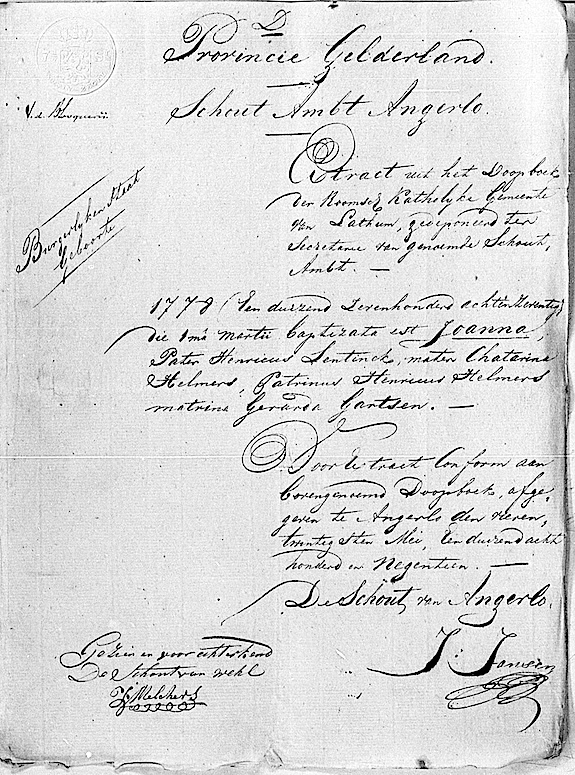 D
Provincie Gelderland.
Schout Ambt Angerlo.
Burgerlyken Staat
Geboorte
Extract uit het Doopboek
der Roomsch Katholyke Gemeente
van Lathum, gedeponeerd ter
Secretarie van genoemde Schout,
Ambt. —
1778 (Een duizend Zevenhonderd achten zeventig)
die 1ma martii baptizata est Joanna,
Pater Henricus Lentinck, mater Chatarina
Helmers, Patrinus Henricus Helmers
matrina Gerarda Gartsen. —
Voor Extract Conform aan
bovengenoemd Doopboek, afge-
geven te Angerlo den vieren,
twintigsten Mei, Een duizend acht
honderd en Negentien. —
De Schout van Angerlo.
J: Jansen
Gezien en voor echt erkend
De Schout van Wehl
Melchers